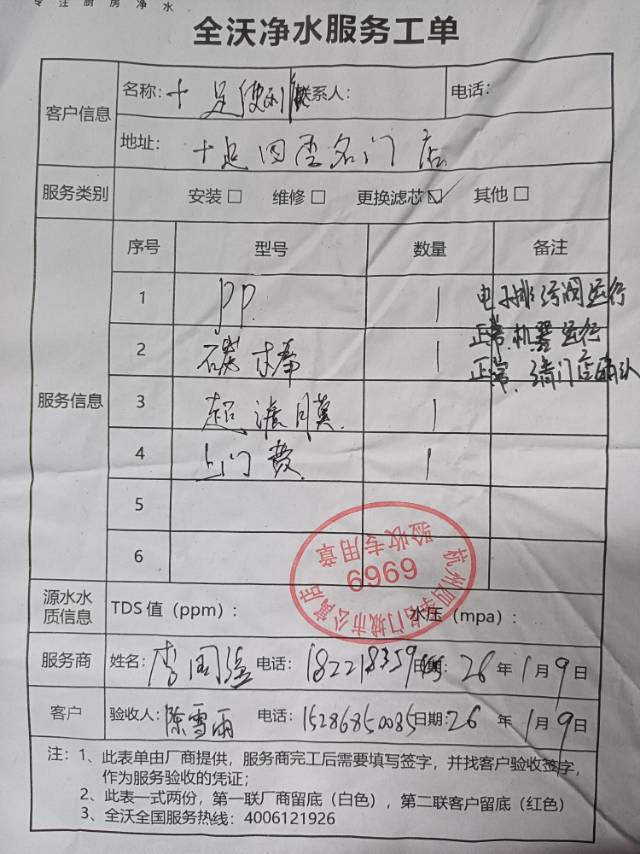 专注厨房净水
全沃净水服务工单
客户信息
名称：十足便利 联系人： 电话：
地址：十足四季名门店
服务类别 安装□ 维修□ 更换滤芯☑ 其他□
服务信息
序号 型号 数量 备注
1 PP. 1 电子排污阀运行
2 碳棒 1 正常.机器运行
3 超滤膜. 1 正常.请门店确认
4 上门费. 1
5
6
验收专用章
6969
源水水质信息 TDS 值（ppm）： 水压（mpa）：
服务商 姓名： 电话： 日期：26年1月9日
客户 验收人：陈雪雨 电话：15286850085 日期：26年1月9日
注：1、此表单由厂商提供，服务商完工后需要填写签字，并找客户验收签字，
作为服务验收的凭证；
2、此表一式两份，第一联厂商留底（白色），第二联客户留底（红色）
3、全沃全国服务热线：4006121926